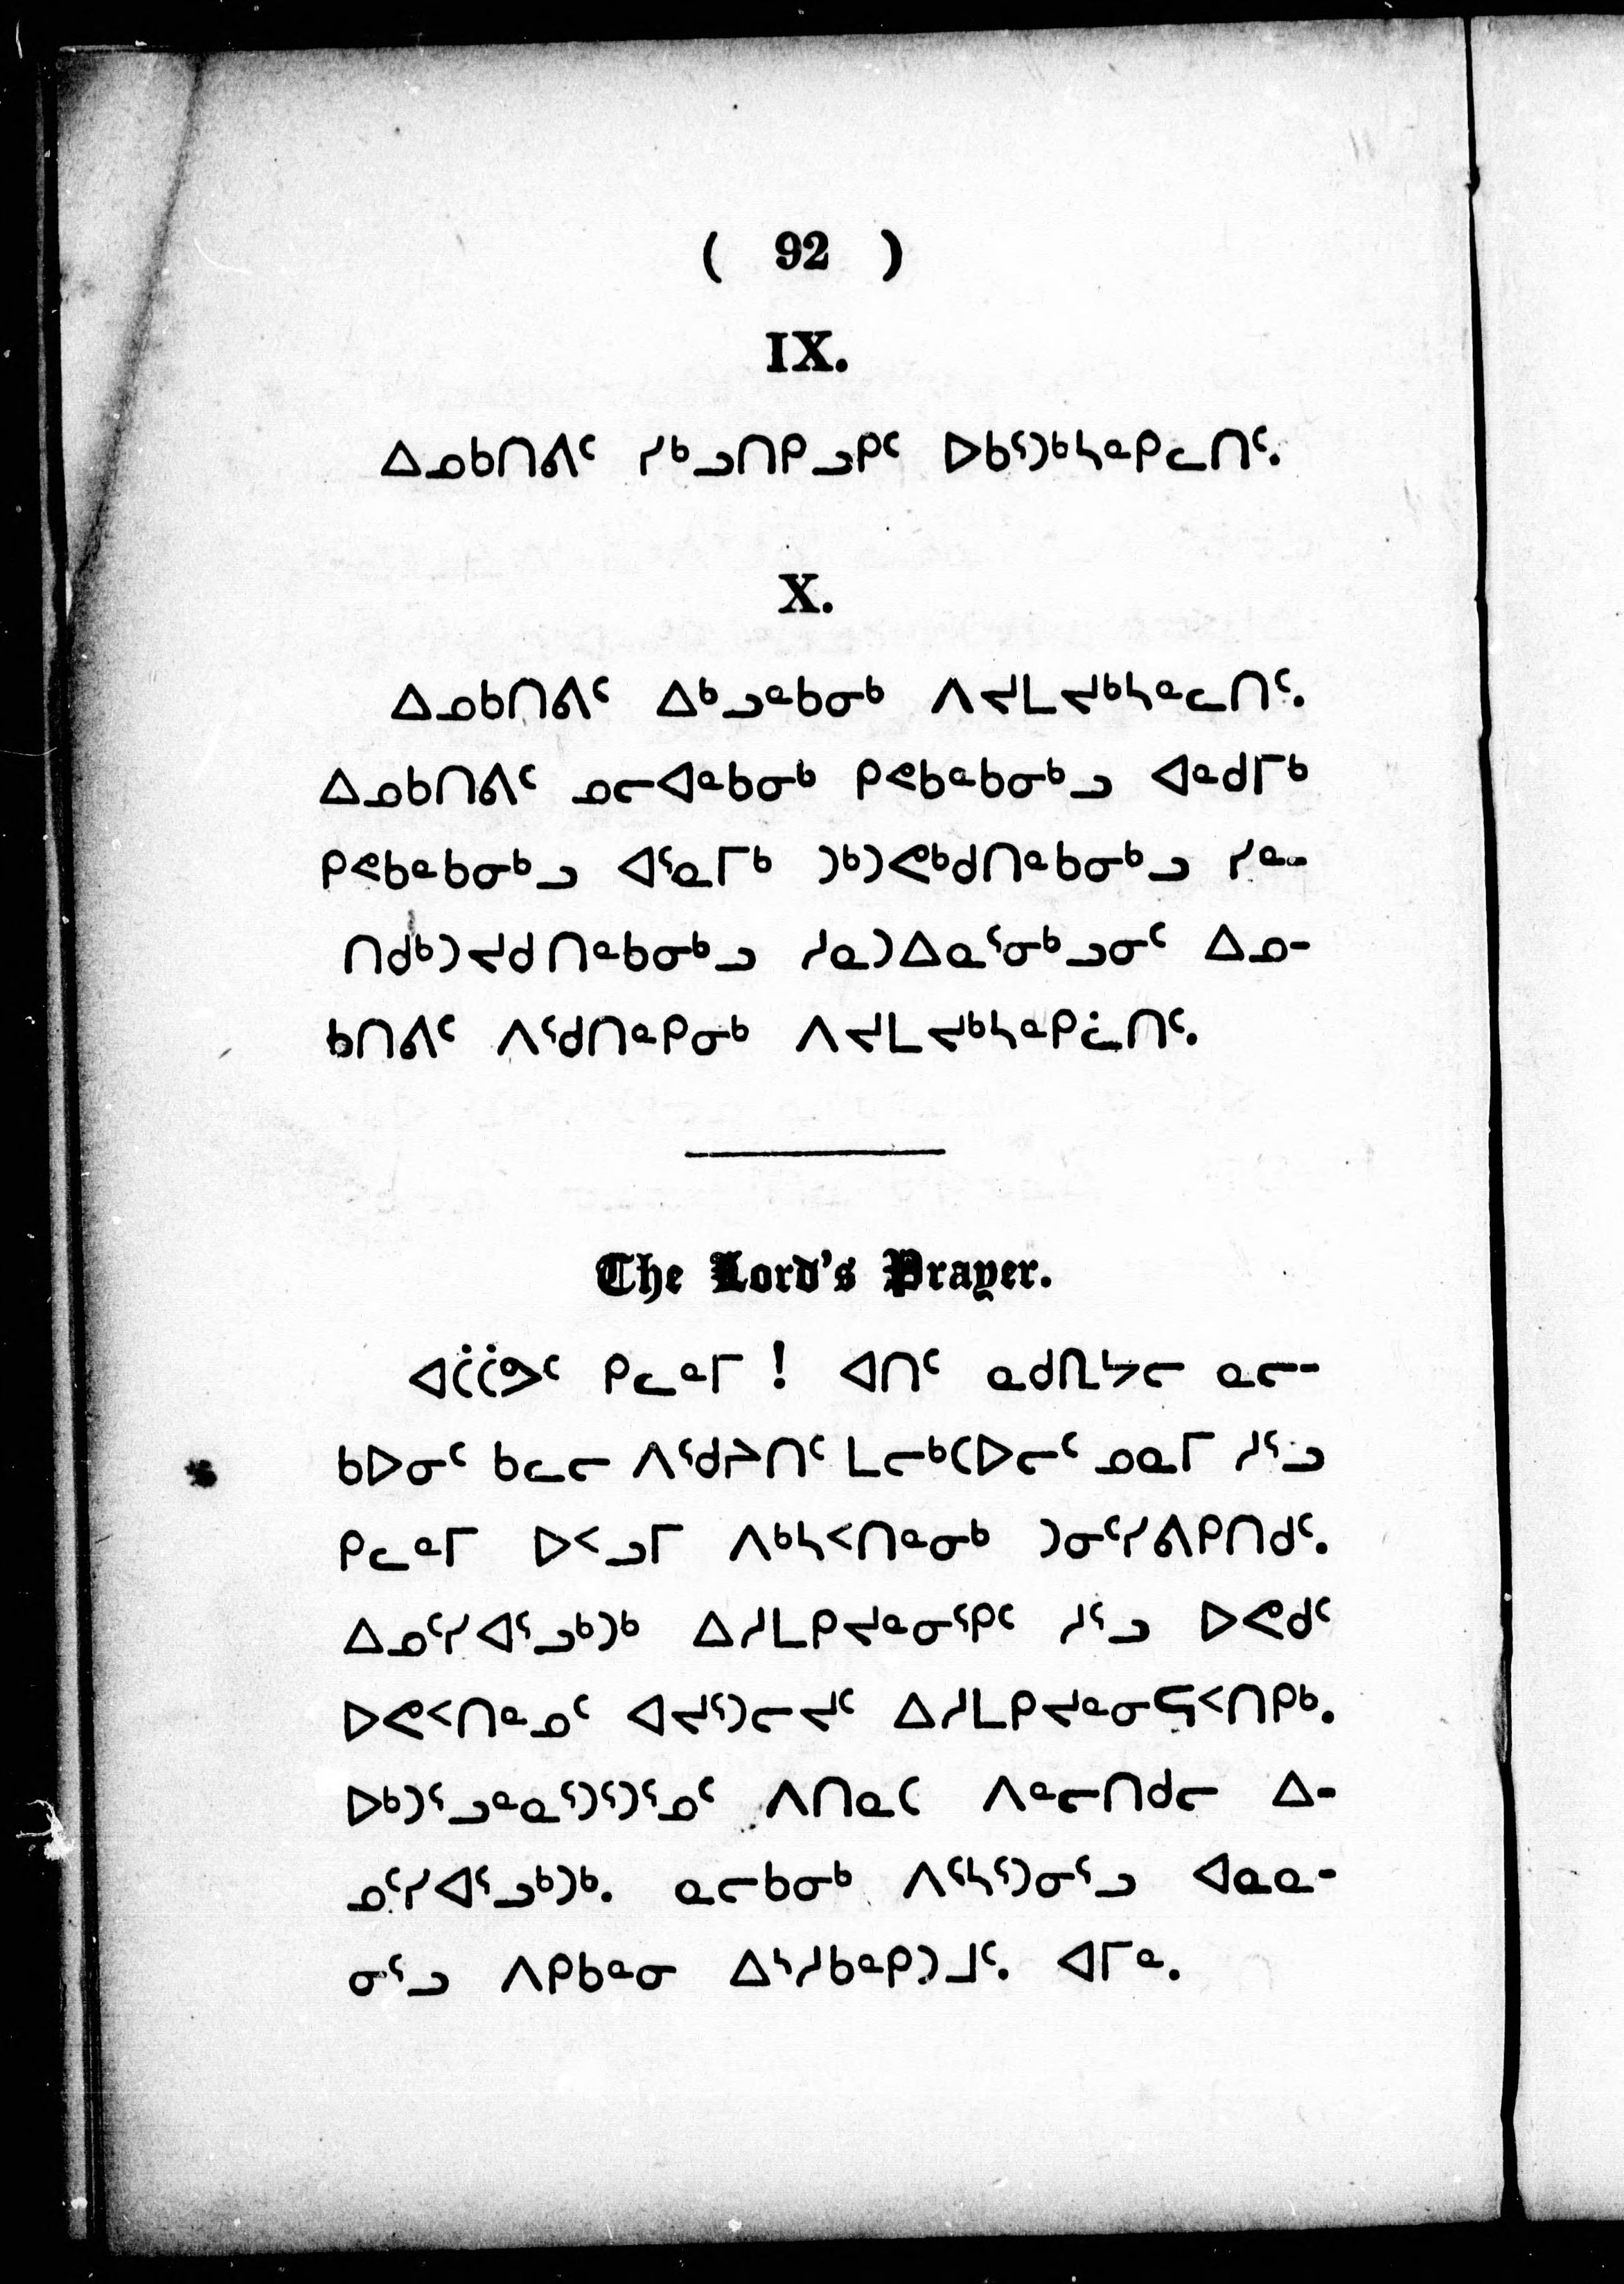 ( 92 )
IX.
ᐃᓄᑲᑎᕕᑦ ᓯᒃᓗᑎᑭᓗᑭᑦ ᐅᑲᕐᑐᒃᓴᓐᑭᓚᑎᑦ.
X.
ᐃᓄᑲᑎᕕᑦ ᐃᒃᓗᓐᑲᓂᒃ ᐱᔪᒪᔪᒃᓴᓐᓚᑎᑦ.
ᐃᓄᑲᑎᕕᑦ ᓄᓕᐊᓐᑲᓂᒃ ᑭᕙᑲᓐᑲᓂᒃᓗ ᐊᓐᑯᒥᒃ
ᑭᕙᑲᓐᑲᓂᒃᓗ ᐊᕐᓇᒥᒃ ᑐᒃᑐᕙᒃᑯᑎᓐᑲᓂᒃᓗ ᓯᓐ-
ᑎᑯᒃᑐᔪᑯᑎᓐᑲᓂᒃᓗ ᓱᓇᑐᐃᓇᕐᓂᒃᓗᓂᑦ ᐃᓄ-
ᑲᑎᕕᑦ ᐱᕐᑯᑎᓐᑭᓂᒃ ᐱᔪᒪᔪᒃᓴᓐᑭᓛᑎᑦ.
The Lord's Prayer.
ᐊᑖᑖᕗᑦ ᑭᓚᓐᒥ ! ᐊᑎᑦ ᓇᑯᕆᔭᓕ ᓇᓕ-
ᑲᐅᓂᑦ ᑲᓚᓕ ᐱᕐᑯᔨᑎᑦ ᒪᓕᒃᑕᐅᓕᑦ ᓄᓇᒥ ᓱᕐᓗ
ᑭᓚᓐᒥ ᐅᑉᓗᒥ ᐱᒃᓴᑉᑎᓐᓂᒃ ᑐᓂᑦᓯᕕᑭᑎᑯᑦ.
ᐃᓄᑦᓯᐊᕐᓗᒃᑐᒃ ᐃᓱᒪᑭᔪᓐᓂᕐᑭᑦ ᓱᕐᓗ ᐅᕙᑯᑦ
ᐅᕙᑉᑎᓐᓄᑦ ᐊᔪᕐᑐᓕᔪᑦ ᐃᓱᒪᑭᔪᓐᓂᕋᑉᑎᑭᒃ.
ᐅᒃᑐᕐᓗᓐᓇᕐᑐᕐᑐᕐᓄᑦ ᐱᑎᓇᑕ ᐱᓐᓕᑎᑯᓕ ᐃ-
ᓄᑦᓯᐊᕐᓗᒃᑐᒃ. ᓇᓕᑲᓂᒃ ᐱᕐᓴᕐᑐᓂᕐᓗ ᐊᓇᓇ-
ᓂᕐᓗ ᐱᑭᑲᓐᓂ ᐃᓴᓱᑲᓐᑭᑐᒧᑦ. ᐊᒥᓐ.